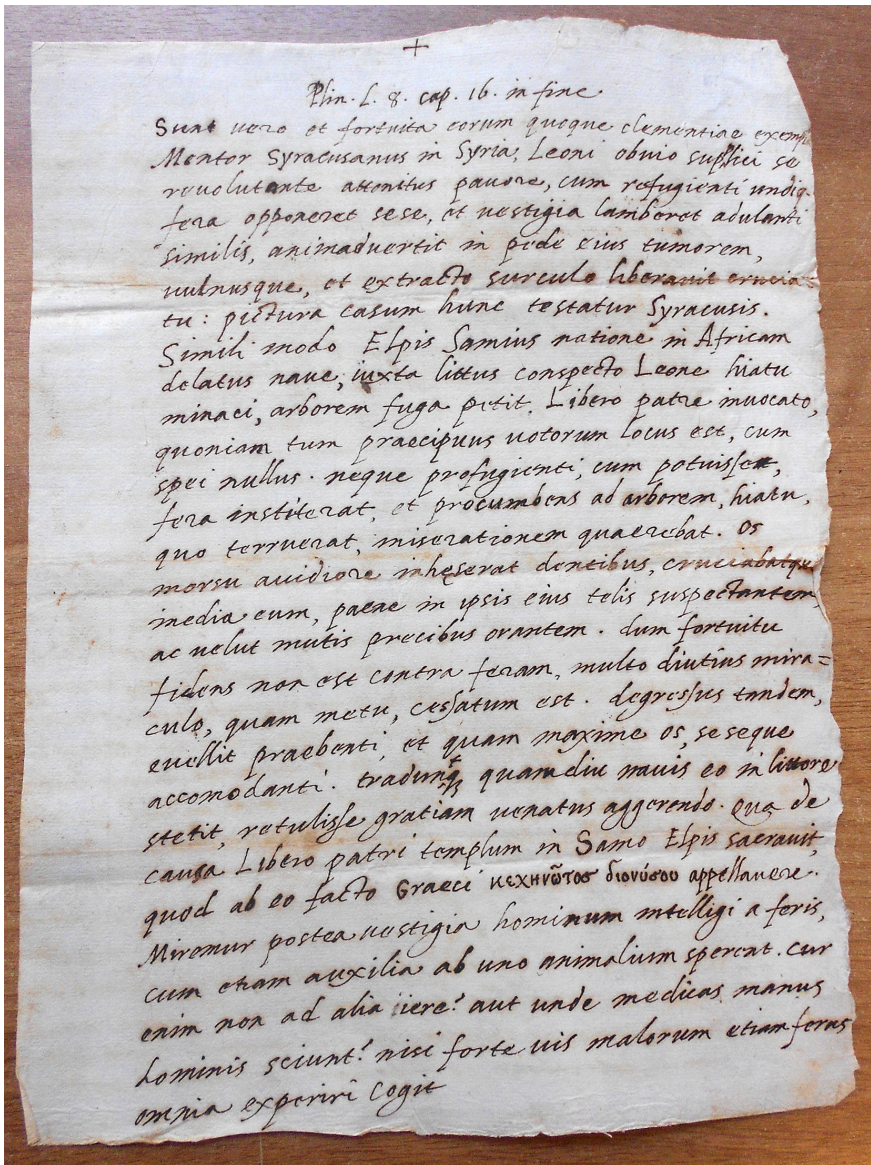 +
Plin. L. 8. cap. 16. in fine
Sunt vero et fortuita eorum quoque clementiae exempl
Mentor Syracusanus in Syria, Leoni obvio suplici se
revolutante attonitus pavore, cum refugienti undiq.
fera opponeret sese, et vestigia lamberet adulanti
similis, animadvertit in pede eius tumorem,
vulnusque, et extracto surculo liberavit crucia
tu: pictura casum hunc testatur Syracusis.
Simili modo Elpis Samius natione in Africam
delatus nave, iuxta littus conspecto Leone hiatu
minaci, arborem fuga petit. Libero patre invocato,
quoniam tum praecipuus votorum locus est, cum
spei nullus. neque profugienti, cum potuisset,
fera institerat, et procumbens ad arborem, hiatu,
quo terruerat, miserationem quaerebat. Os
morsu avidiore inhęserat dentibus, cruciabatque
inedia eum, paene in ipsis eius telis suspectantem,
ac velut mutis precibus orantem. dum fortuitu
fidens non est contra feram, multo diutius mira=
culo, quam metu, cessatum est. degressus tandem,
evellit praebenti, et quam maxime os, seseque
accomodanti. tradunt quamdiu navis eo in littore
stetit, retulisse gratiam venatus aggerendo. Qua de
causa Libero patri templum in Samo Elpis sacravit,
quod ab eo facto Graeci κεχηνῶτοσ διονύσου appellavere.
Miremur postea vestigia hominum intelligi a feris,
cum etiam auxilia ab uno animalium sperent. cur
enim non ad alia iere? aut unde medicas manus
hominis sciunt? nisi forte vis malorum etiam feras
omnia experiri cogit